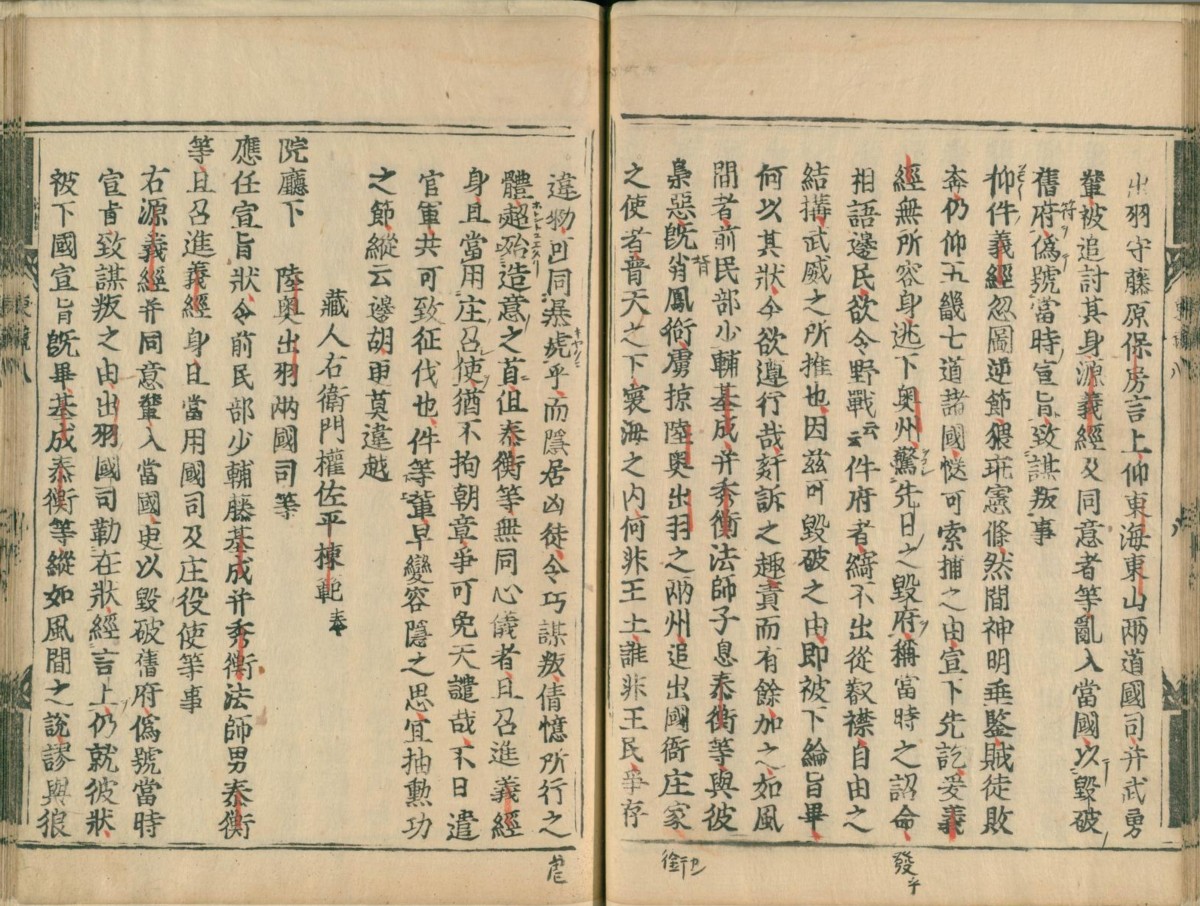 出羽守藤原保房言上仰東海東山兩道國司并武勇
輩被追討其身源義經及同意者等亂入當國以毀破
舊府僞號當時宣旨致謀叛事
仰件義經忽圖逆節猥乖憲條然間神明垂鑒賊徒敗
奔仍仰五畿七道諸國慥可索捕之由宣下先訖爰義
經無所容身逃下奥州驚先日之毀府稱當時之詔命
相語邊民欲令野戰云云件府者縡不出從叡襟自由之
結搆武威之所推也因茲可毀破之由即被下綸旨畢
何以其狀令欲遵行哉奸訴之趣責而有餘加之如風
聞者前民部少輔基成并秀衡法師子息泰衡等與彼
梟惡旣背鳳銜虜掠陸奥出羽之兩州追出國衙庄家
之使者普天之下寰海之内何非王土誰非王民爭存
違物可同暴虎乎而隱居凶徒令巧謀叛倩憶所行之
體超殆造意之首但泰衡等無同心儀者且召進義經
身且當用庄召使猶不拘朝章爭可免天譴哉不日遣
官軍共可致征伐也件等輩早變容隱之思宜抽勲功
之節縱云邊胡更莫違越
藏人右衛門權佐平棟範奉
院廳下 陸奥出羽兩國司等
應任宣旨狀令前民部少輔藤基成并秀衡法師男泰衡
等且召進義經身且當用國司及庄役使等事
右源義經并同意輩入當國吏以毀破舊府僞號當時
宣旨致謀叛之由出羽國司勒在狀經言上仍就彼狀
被下國宣旨旣畢基成泰衡等縱如風聞之說謬與狼